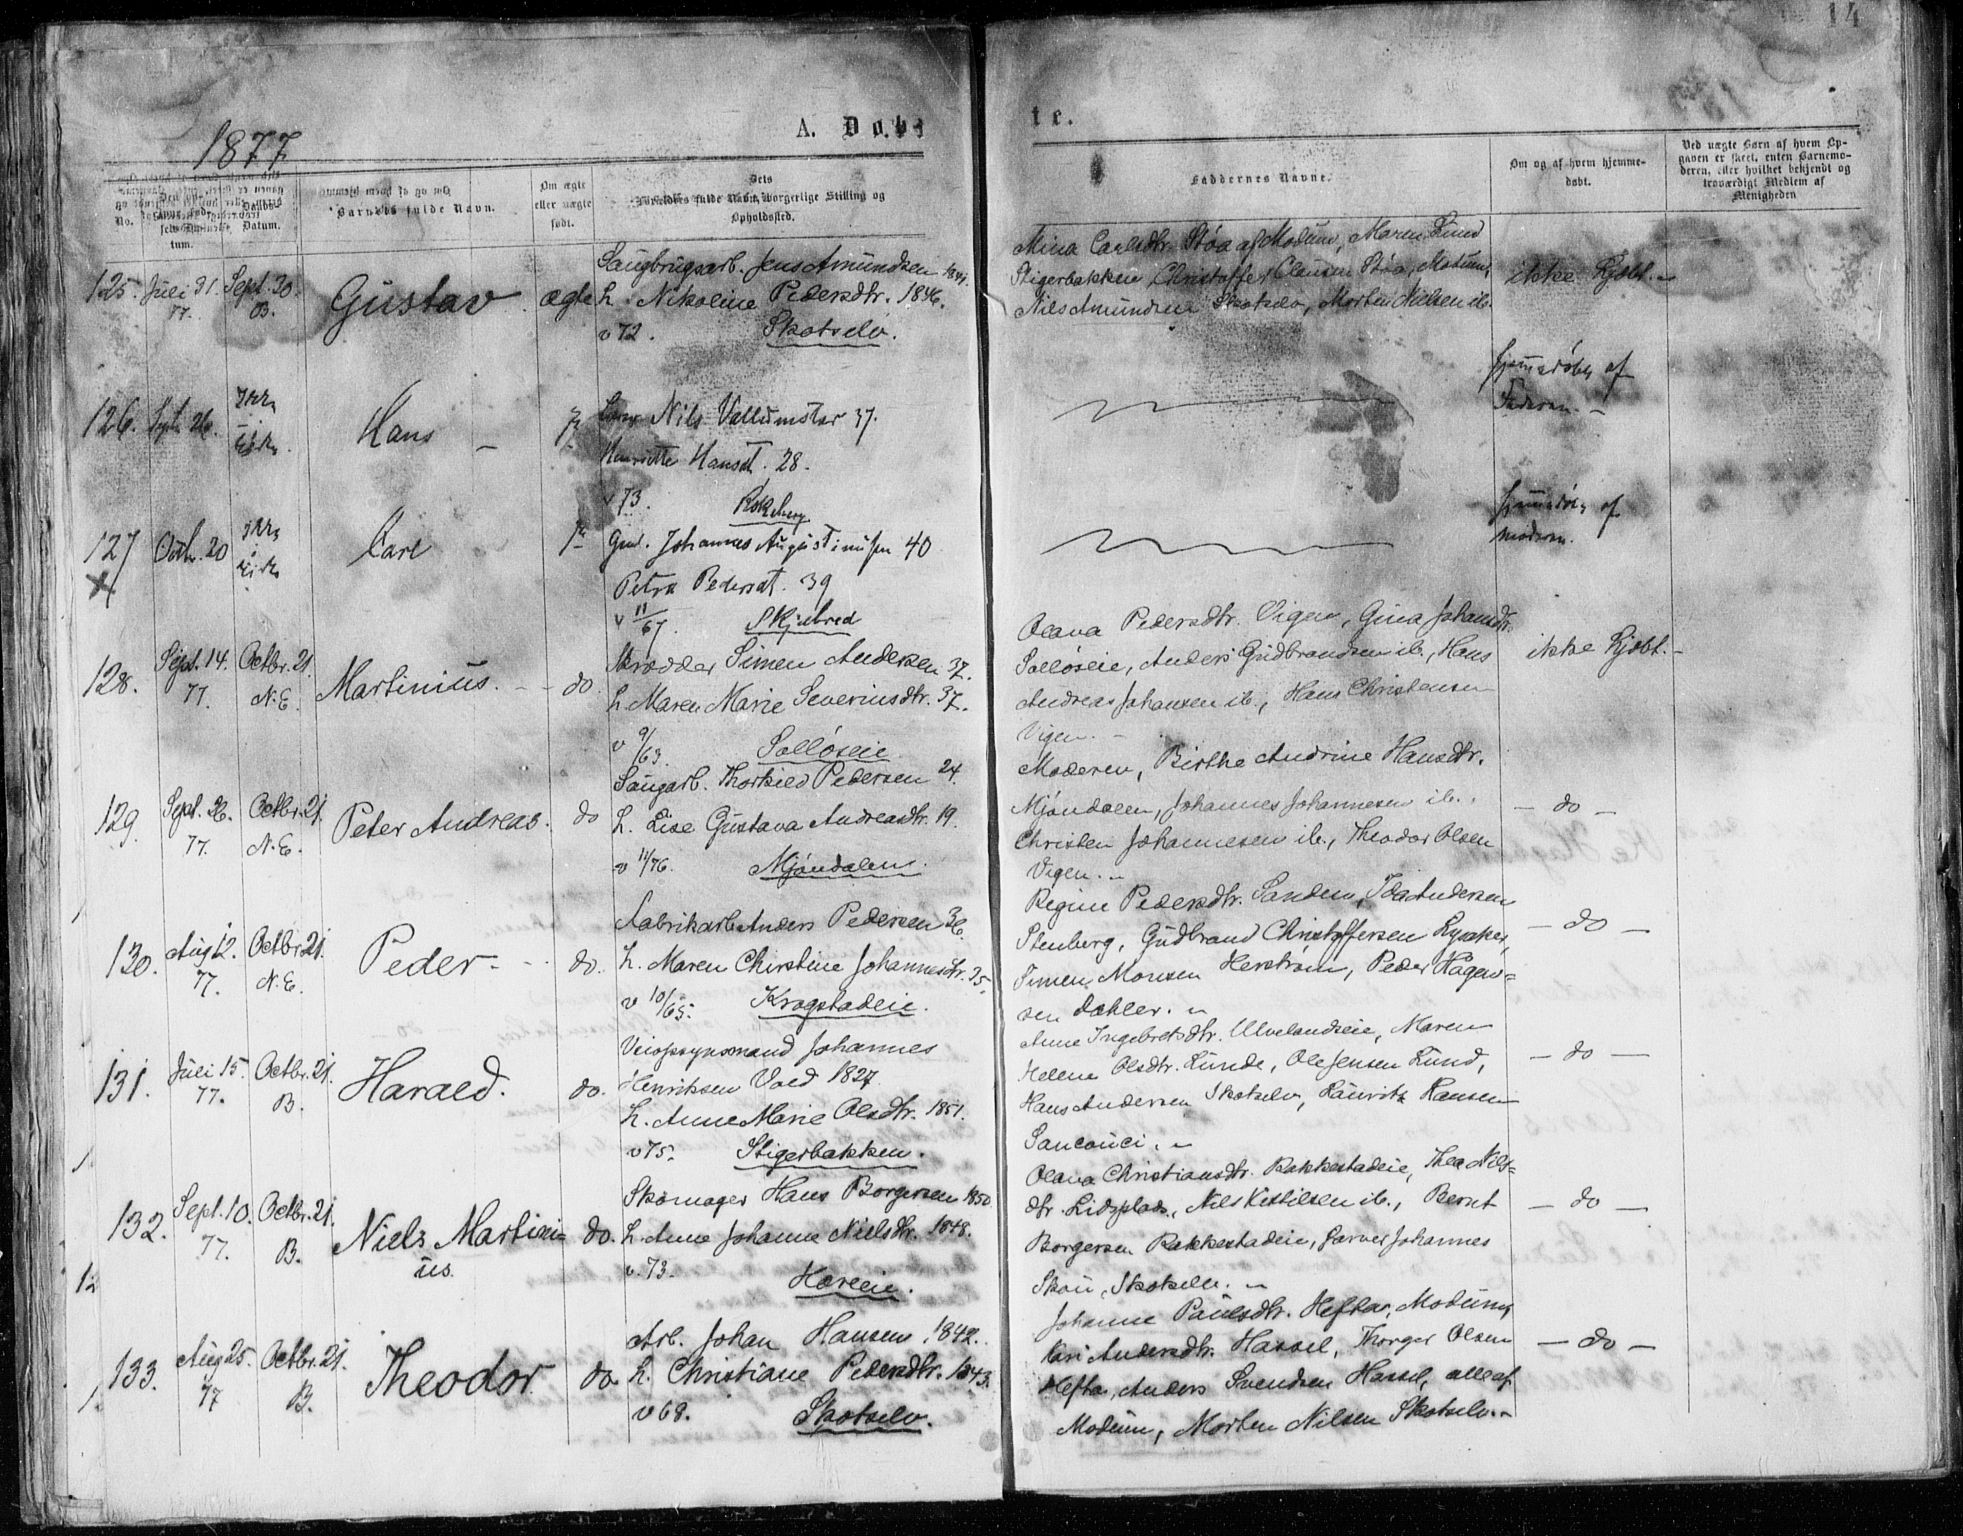 14
1877
A. Døb
te.
No.
Barnets fulde Navn.
Om ægte eller uægte født.
Dets Forældres fulde Navn, borgerlige Stilling og Opholdssted.
Faddernes Navne.
Om og af hvem hjemmedøbt.
Ved uægte Børn af hvem Opgaven er skeet, enten Barnemoderen, eller hvilket bekjendt og troværdigt Medlem af Menigheden
125. Juli 31. 77. Sept. 30. B. Gustav ægte
Saugbrugsarb. Jens Amundsen 1841.
h. Nikoline Pedersdtr. 1846.
v 72. Skotselv.
Mina Carlsdtr. Støa af Modum, Maren Lund
Stigerbakken, Christoffer Clausen Støa, Modum,
Nils Amundsen Skotselv, Morten Nielsen ib.
ikke hjdbt.
126. Sept. 26. Hans
Nils Vellumstar 37.
Henriette Hansdt. 28.
v 73.
hjemmedøbt af
Faderen.
127 Octbr. 20 Carl
Johannes Augustinusen 40
Petra Pedersdt. 39
v 11/67. Skjebred
hjemmedøbt af
moderen.
128. Sept. 14. 77. Octbr. 21. N.E. Martinius. do.
Skrædder Simen Andersen 37.
h. Maren Marie Severinsdtr. 37.
v 9/63. Solløseie
Olava Pedersdtr. Vigen, Gina Johansdtr.
Solløseie, Anders Gudbrandsen ib., Hans
Andreas Johansen ib., Hans Christensen
Vigen.
ikke hjdbt.
129. Sept. 26. 77. Octbr. 21. N.E. Peter Andreas. do
Saugarb. Thorkild Pedersen 24.
h. Lise Gustava Andreasdtr. 19.
v 11/76. Mjøndalen.
Moderen, Birthe Andrine Hansdtr.
Mjøndalen, Johannes Johannesen ib.,
Christen Johannesen ib., Theodor Olsen
Vigen.
do
130. Aug 12. 77. Octbr. 21. N.E. Peder do.
Fabrikarb. Anders Pedersen 36.
h. Maren Christine Johannesdtr. 35.
v 10/65. Krogstadeie.
Regine Pedersdtr. Sanden, Ida Andersen
Stenberg, Gudbrand Christoffersen Lysaker,
Simen Monsen Herstrøm, Peder Hagen-
sen Dahler.
do
131. Juli 15. 77. Octbr. 21. B. Harald. do.
Veiopsynsmand Johannes
Henriksen Vold 1827.
h. Anne Marie Olsdtr. 1851.
v 75. Stigerbakken.
Anne Ingebretsdtr. Ulvelandseie, Maren
Helene Olsdtr. Lunde, Ole Jensen Lund,
Hans Andersen Skotselv, Lauritz Hansen
Sancouci.
do
132. Sept. 10. 77. Octbr. 21. B. Niels Martini-
us. do.
Skomager Hans Borgersen 1850.
h. Anne Johanne Nielsdtr. 1848.
v. 73. Horeie.
Olava Christiansdtr. Bakkestadeie, Thea Nils-
dtr. Lidsplads, Nils Kittilsen ib., Bernt
Borgersen Bakkestadeie, Garver Johannes
Skou, Skotselv.
do
133. Aug 25. 77 Octbr. 21. B. Theodor do.
Arb. Johan Hansen 1842.
h. Christiane Pedersdtr. 1843.
v 68. Skotselv.
Johanne Paulsdtr. Hefta, Modum,
Kari Andersdtr. Hassel, Thorger Olsen
Hefta, Anders Svendsen Hassel, alle af
Modum, Morten Nilsen Skotselv.
do